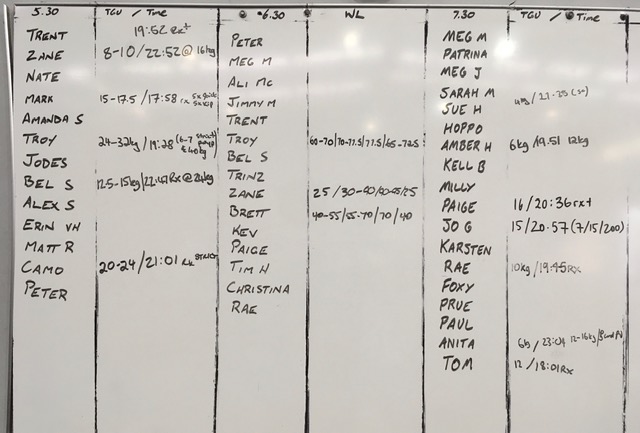 5.30 TGU / Time
TRENT 19:52 Rx+
ZANE 8-10/22:52@16kg
NATE
MARK 15-17.5/17:58 rx
AMANDA S
TROY 24-32kg/19:28
JODES
BEL S 12.5-15kg/22:47Rx@24kg
ALEX S
ERIN VH
MATT R
CAMO 20-24/21:01 Rx STRICT
PETER
6.30 WL
PETER
MEG M
ALI MC
JIMMY M
TRENT
TROY 60-70/70-77.5/77.5/65-72.5
BEL S
TRINZ
ZANE 25/30-40/40-45/25
BRETT 40-55/55-70/70/40
KEV
PAIGE
TIM H
CHRISTINA
RAE
7.30 TGU / Time
MEG M
PATRINA
MEG J
SARAH M
SUE H
HOPPO
AMBER H 6kg/19.51 12kg
KELL B
MILLY
PAIGE 16/20:36rx+
JO G 15/20.57(7/15/200)
KARSTEN
RAE 10kg/19:45Rx
FOXY
PRUE
PAUL
ANITA 6kg/23:04 12-16kg/
TOM 12/18:01Rx